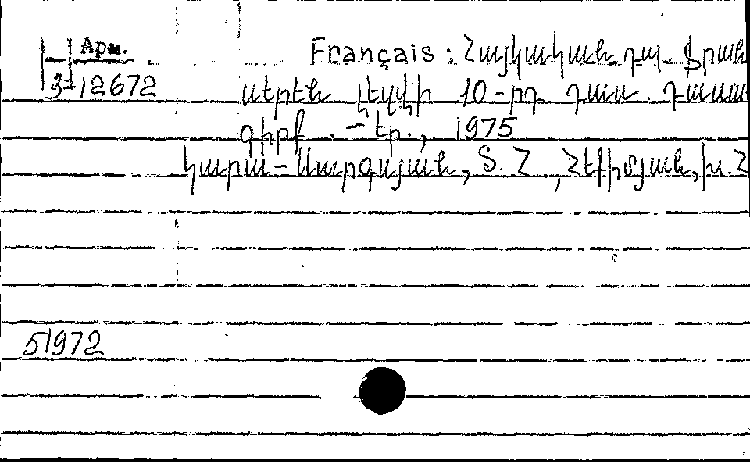 Арм.
3-12672
Français : Հայկական դպ. ֆրան
սերեն լեզվի 10-րդ դաս. դասա
գիրք. — Եր., 1975
Կարա-Սարգսյան, Տ. Հ., Հեքիմյան, Խ. Հ
51972